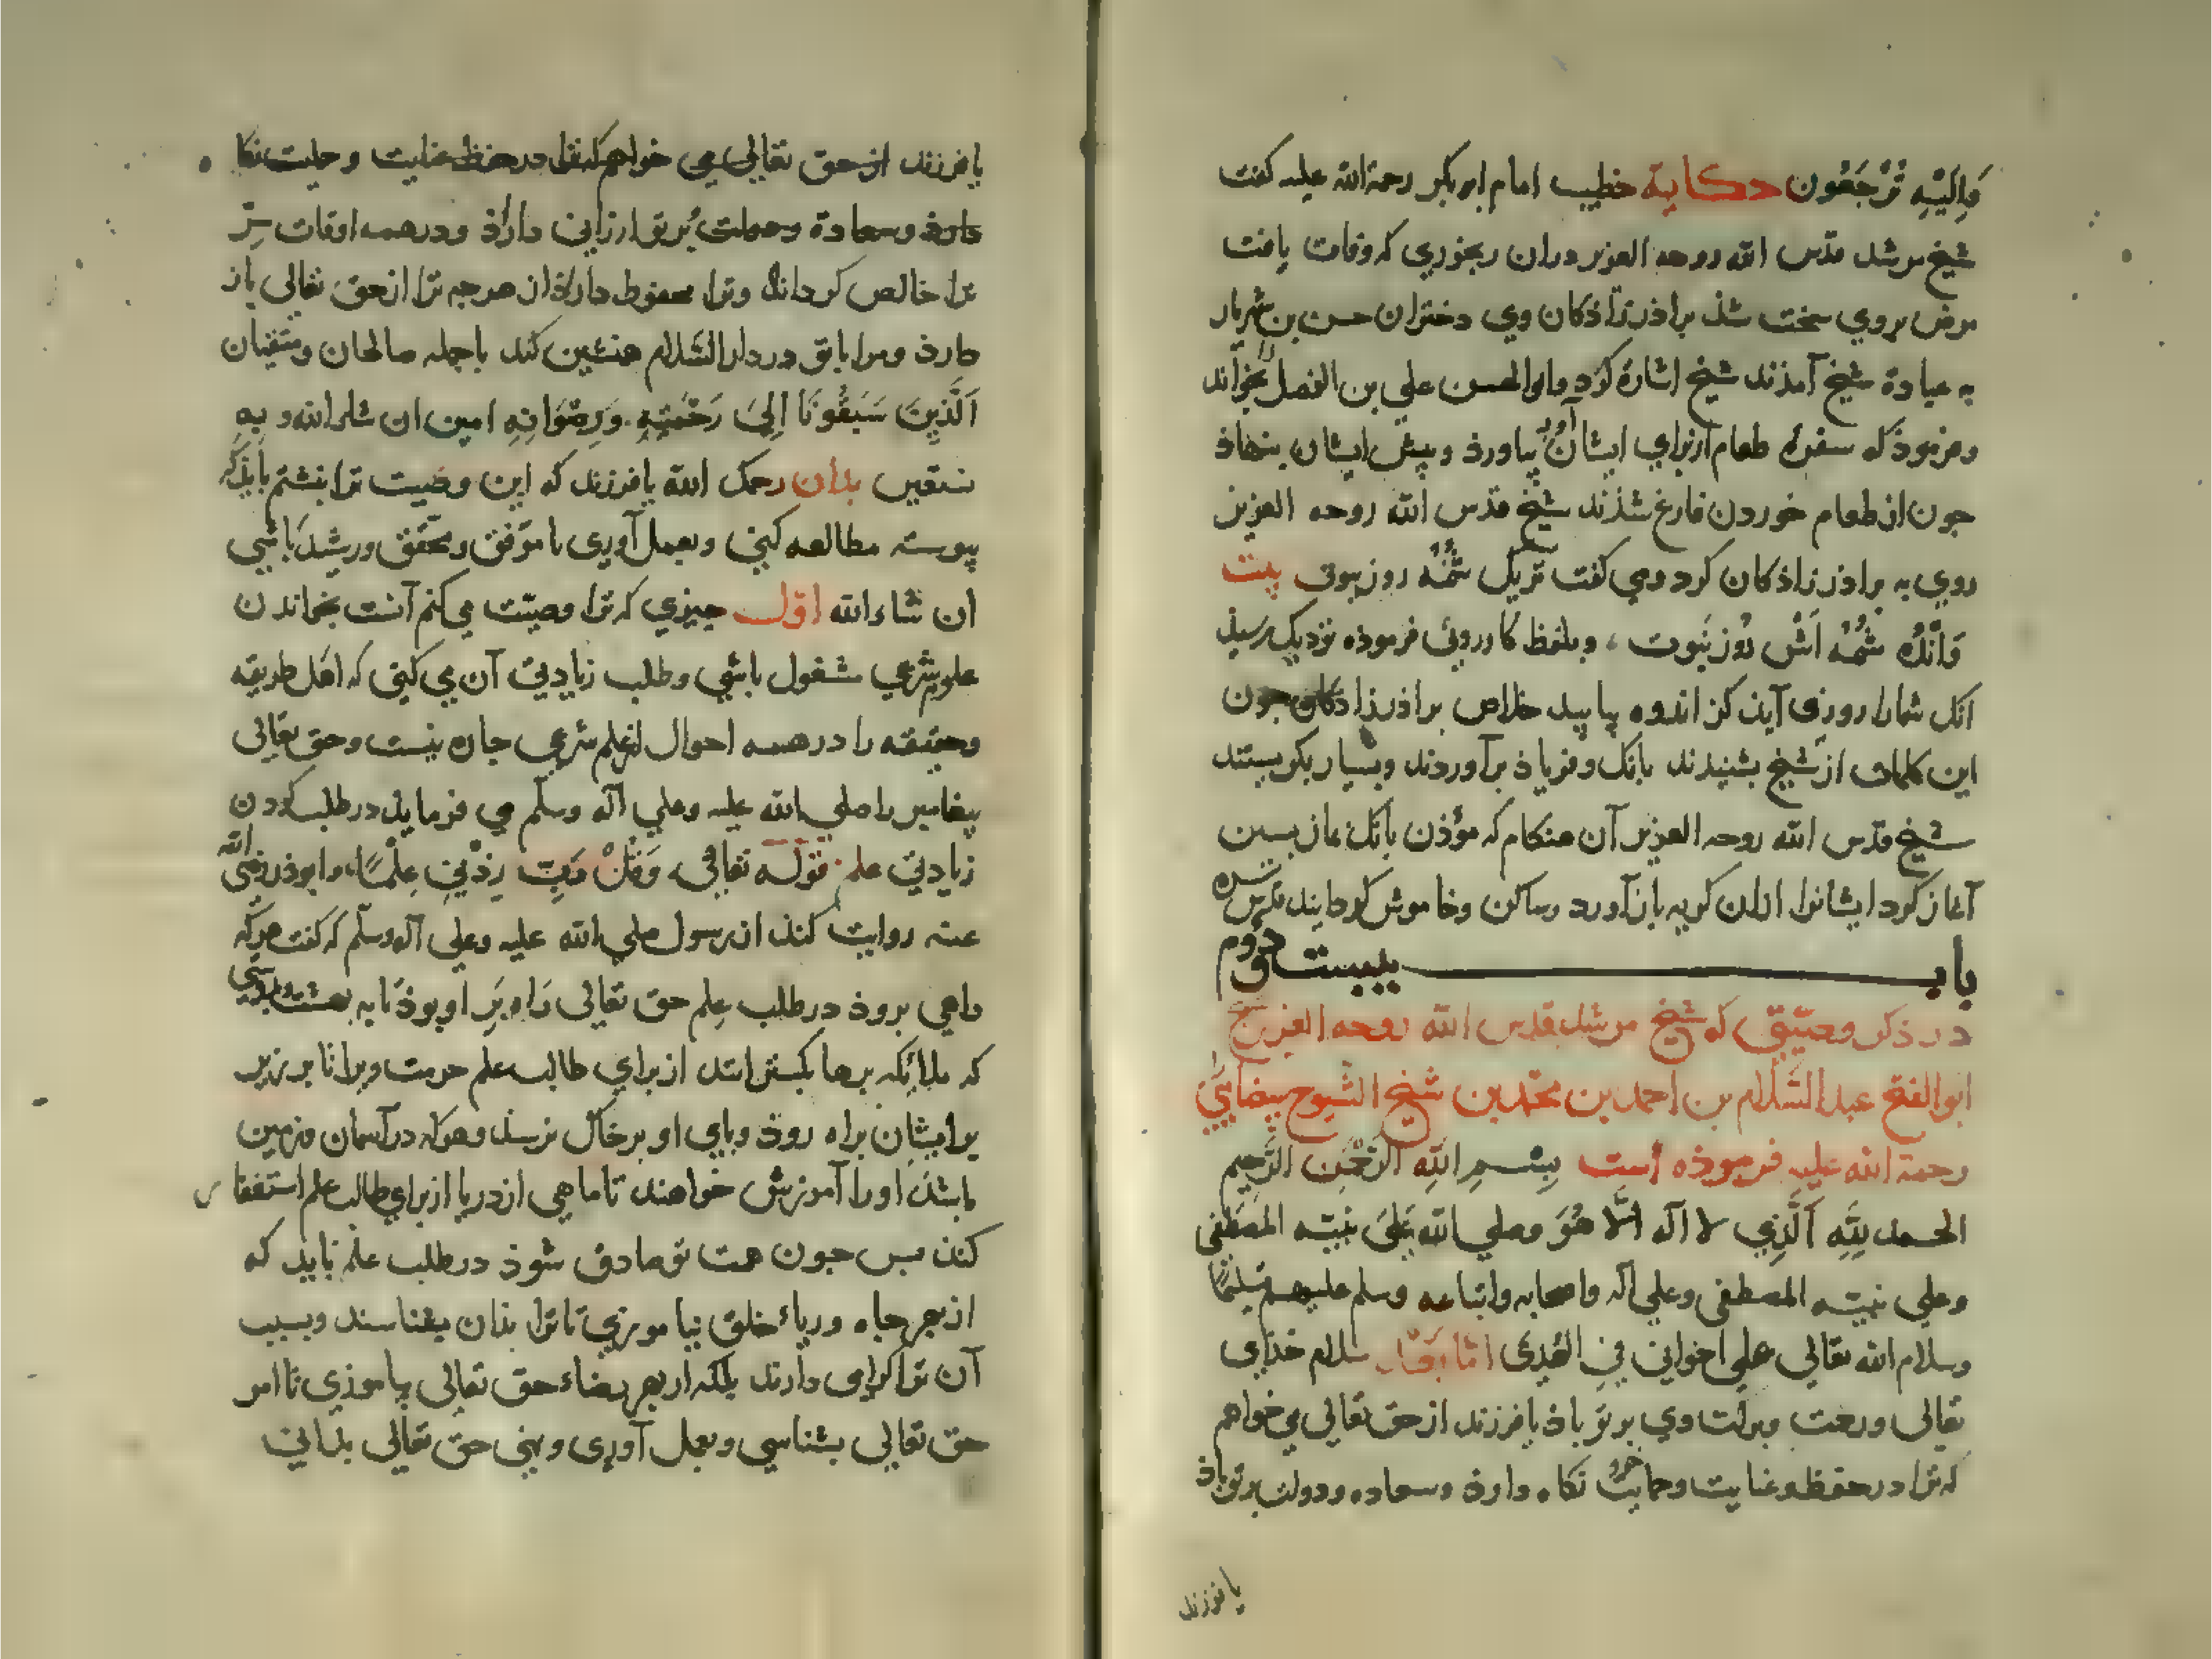 وَاِلَیْهِ تُرْجَعُون حکایة خطیب امام ابو بکر رحمة الله علیه کفت
شیخ مرشد قدس الله روحه العزیز دران رنجوری که وفات یافت
مرض بروی سخت شذ براذرزاذکان وی دختران حسن بن شهریار
به عیادة شیخ آمذند شیخ اشارة کرد وابوالحسن علی بن الفضل را بخواند
وفرموذ که سفرهٔ طعام ازبرای ایشان بیاورذ وپیش ایشان بنهاذ
جون از طعام خوردن فارغ شذند شیخ قدس الله روحه العزیز
روی به براذرزاذکان کرد ومی کفت
وبلفظ کازرونی فرموذه نزدیک رسیذ
انک شمارا روزی آیذ کز اندوه خلاص براذرزاذکان جون
این کلمات از شیخ بشنیدند بانک وفریاذ برآوردند وبسیار بکریستند
شیخ قدس الله روحه العزیز آن هنکام که مؤذن بانک نماز بسین
آغاز کرد ایشانرا ازان کریه بازآورد وساکن وخاموش کردانید قدس سره
باب بیست ودوم
در ذکر وصیّتی که شیخ مرشد قدس الله روحه العزیز
ابوالفتح عبدالسّلام بن احمد بن محمّد بن شیخ الشیوخ بیضایی را
رحمة الله علیه فرموذه است بِسْمِ اللهِ الرَّحْمَنِ الرَّحیم
الحمد لِلّهِ اَلَّذِی لا اله الّا هُوَ وصلی الله عَلَی نبیّه المصطفی
وعلی نبیّه المصطفی وعلی آله واصحابه واتباعه وسلم علیهم تسلیمًا
وسلام الله تعالی علی اخوانی فی الهُدی امّا بَعْد سلام خذای
تعالی ورحمت وبرکت وی برتو باذ یا فرزند از حق تعالی می خواهم
که ترا در حفظ وعنایت وحمایت خود نکاه دارذ وسعاده ودولت برتو باذ
یا فرزند
یا فرزند از حق تعالی می خواهم که ترا در حفظ عنایت وحمایت نکاه
دارذ وسعادة برتو ارزانی داراذ ودرهمه اوقات سِرّ
ترا خالص کرداند وترا محفوظ داراذ از هرجه ترا ازحق تعالی باز
دارذ ومرا باتو در دارالسّلام همنشین کند باجمله صالحان ومتّقیان
اَلَّذِینَ سَبَقُونَا اِلیَ رَحْمَتِهِ وَرِضْوَانِهِ امین ان شاء الله وبه
نستعین بدان رحمک الله یا فرزند که این وصیت ترا نبشتم بایذکه
پیوسته مطالعه کنی وبعمل آوری تا موَفّق ومحقّق ورشید باشی
ان شاءالله اوّل جیزی که ترا وصیّت می کنم آنست بخواندن
علوم شرعی مشغول باشی وطلب زیادتی آن می کنی که اهل طریقه
وحقیقه را در همه احوال ازعلم شرعی جاره نیست وحق تعالی
پیغامبر را صلی الله علیه وعلی آله وسلّم می فرمایذ در طلب کردن
زیادتی علم قوله تعالی وَقُلْ رَبِّ زِدْنِی عِلْمًا وابوذر رضی الله
عنه روایت کند از رسول صلی الله علیه وعلی آله وسلّم که کفت هرکه
راهی بروذ در طلب عِلم حق تعالی رَاه وَیرا بوذ تا به بهشت
که ملائکه برها بکسترانند ازبرای طالب علم حرمت ویرا تا برزبر
پرایشان براه روذ وپای او برخاک نرسذ وهرکه درآسمان وزمین
باشذ اورا آمرزش خواهند تا ماهی از دریا ازبرای طالب علم استغفار
کنذ پس جون همت تو صادق شوذ در طلب علم بایذ که
ازبهر جاه وریاء خلق نیاموزی تا ترا بذان بشناسند وبسبب
آن ترا کرامی دارند بلکه ازبهر رضاء حق تعالی بیاموذی تا امر
حق تعالی بشناسی وبعمل آوری ونهی حق تعالی بدانی